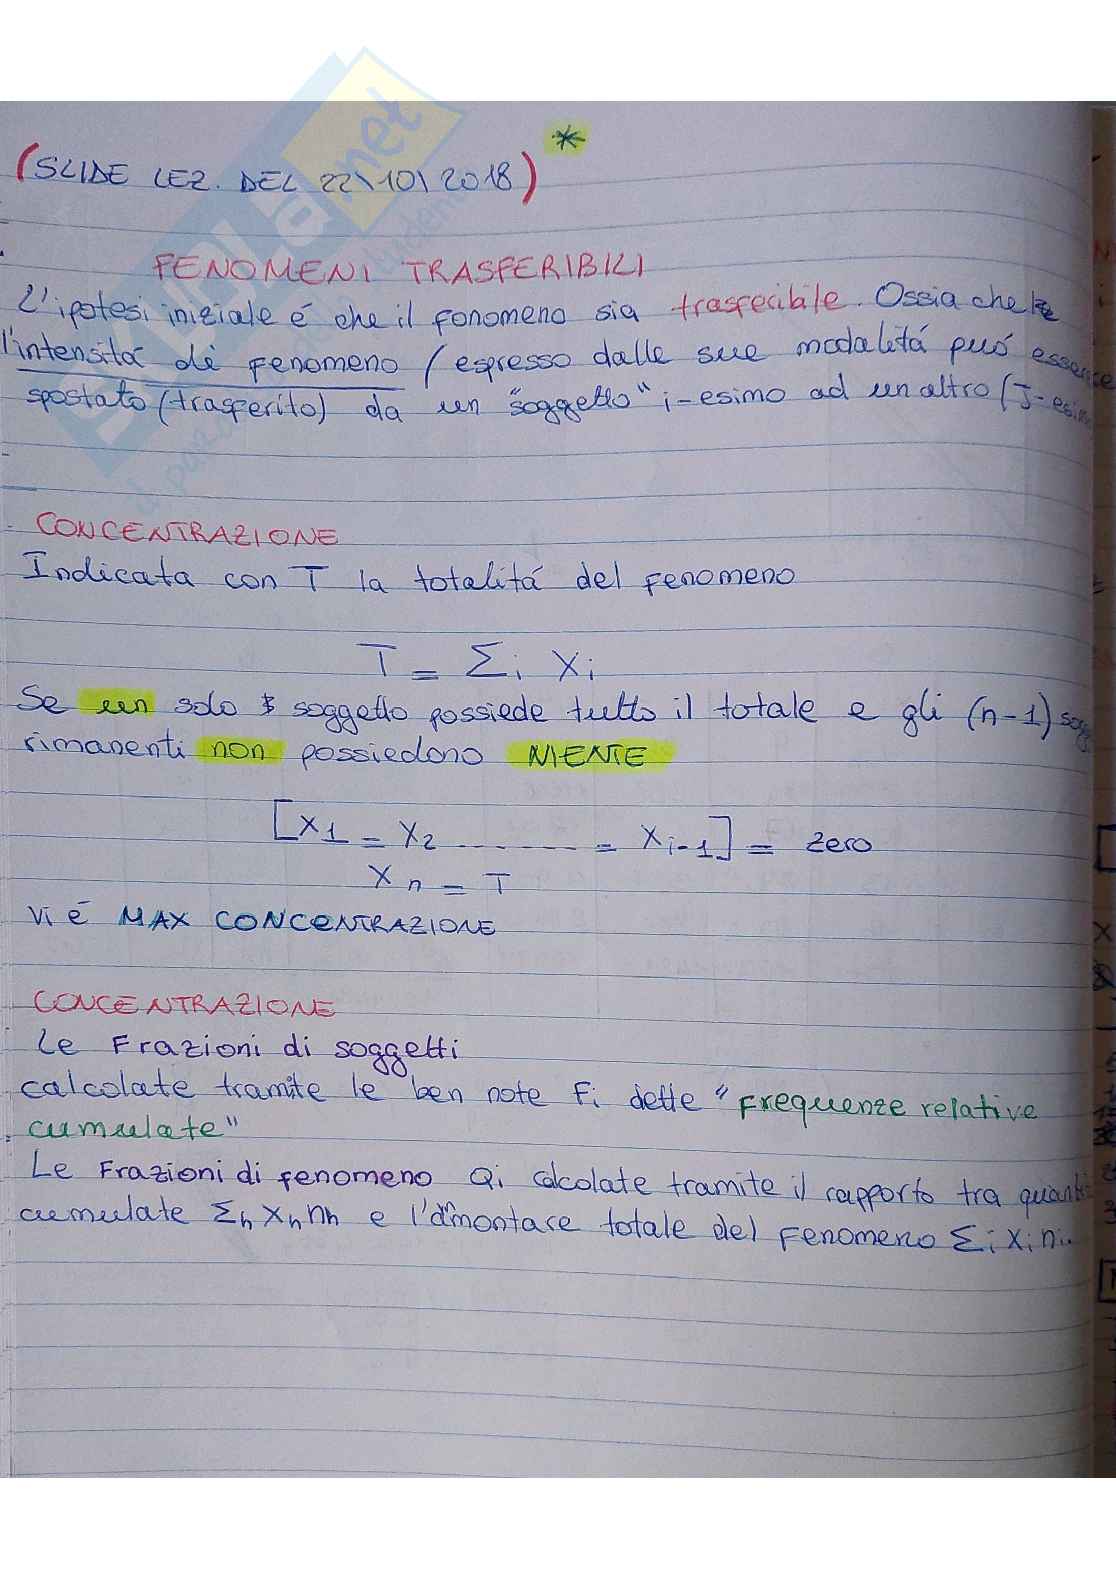 (SLIDE LEZ. DEL 22\10\2018) *
FENOMENI TRASFERIBILI
L'ipotesi iniziale é che il fonomeno sia trasferibile. Ossia che
l'intensitá di fenomeno (espresso dalle sue modalitá puó essere
spostato (trasferito) da un "soggetto" i-esimo ad un altro (J-esimo
CONCENTRAZIONE
Indicata con T la totalitá del fenomeno
T = Σi Xi
Se un solo soggetto possiede tutto il totale e gli (n-1) sogg
rimanenti non possiedono NIENTE
[X1 = X2 ------- = Xi-1] = zero
Xn = T
Vi é MAX CONCENTRAZIONE
CONCENTRAZIONE
Le Frazioni di soggetti
calcolate tramite le ben note Fi dette "Frequenze relative
cumulate"
Le Frazioni di fenomeno Qi calcolate tramite il rapporto tra quanti
cumulate Σh Xh nh e l'ammontare totale del fenomeno Σi Xi ni.